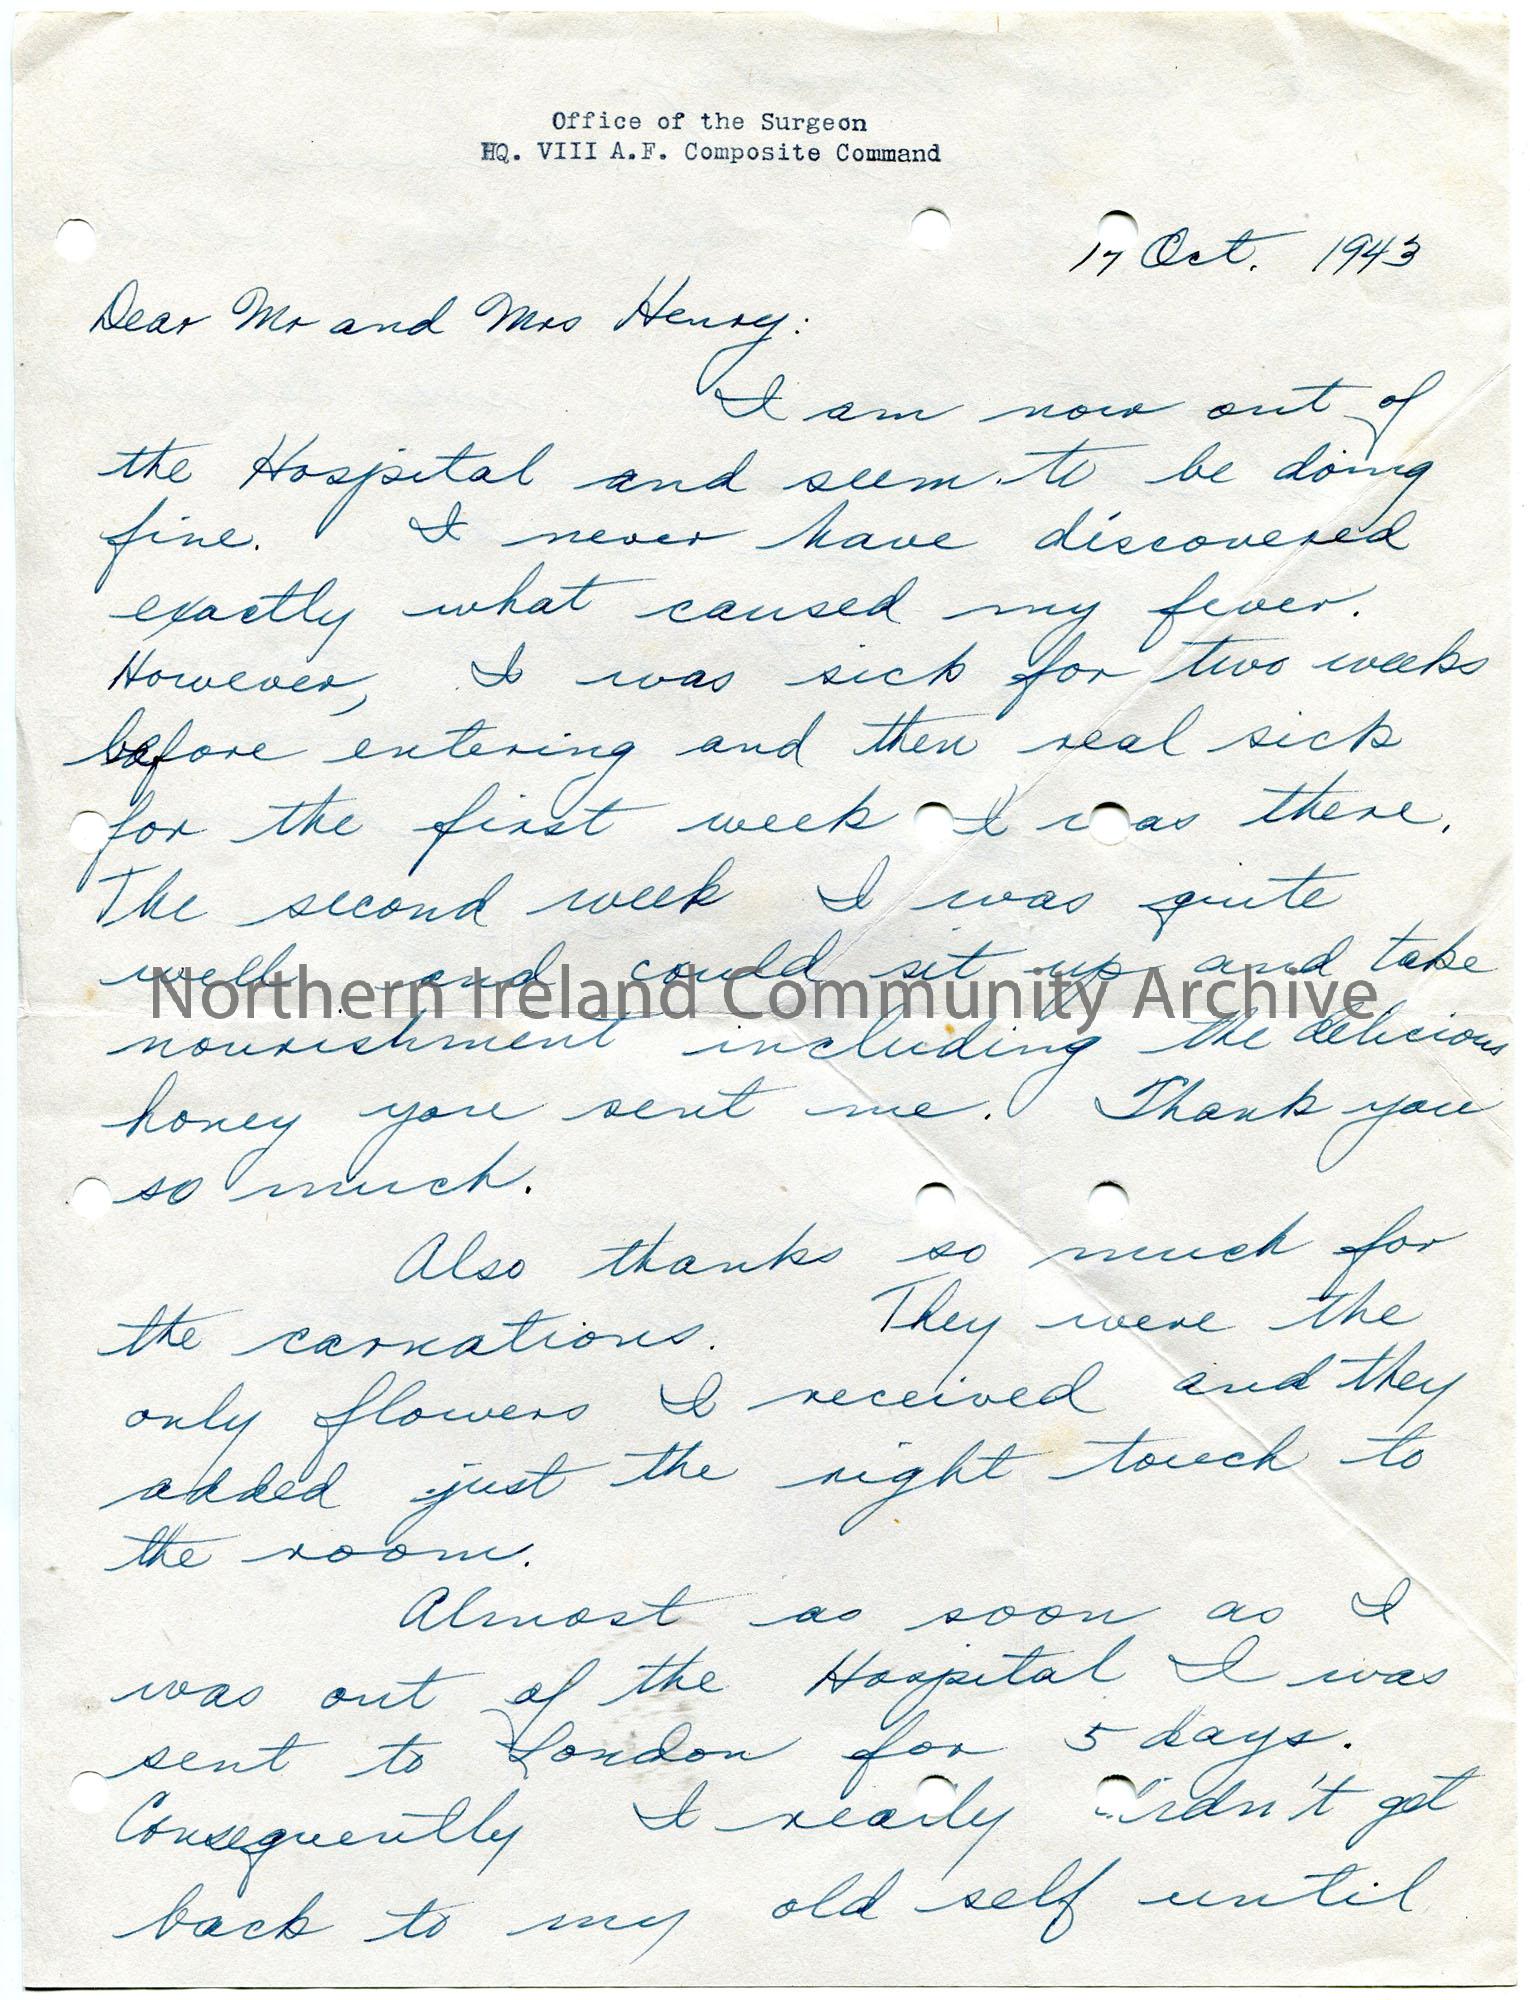 Office of the Surgeon
HQ. VIII A.F. Composite Command
17 Oct. 1943
Dear Mr and Mrs Henry:
I am now out of
the Hospital and seem to be doing
fine. I never have discovered
exactly what caused my fever.
However, I was sick for two weeks
before entering and then real sick
for the first week I was there.
The second week I was quite
well and could sit up and take
Northern Ireland Community Archive
nourishment including the delicious
honey you sent me. Thank you
so much.
Also thanks so much for
the carnations. They were the
only flowers I received and they
added just the right touch to
the room.
Almost as soon as I
was out of the Hospital I was
sent to London for 5 days.
Consequently I really didn't get
back to my old self until